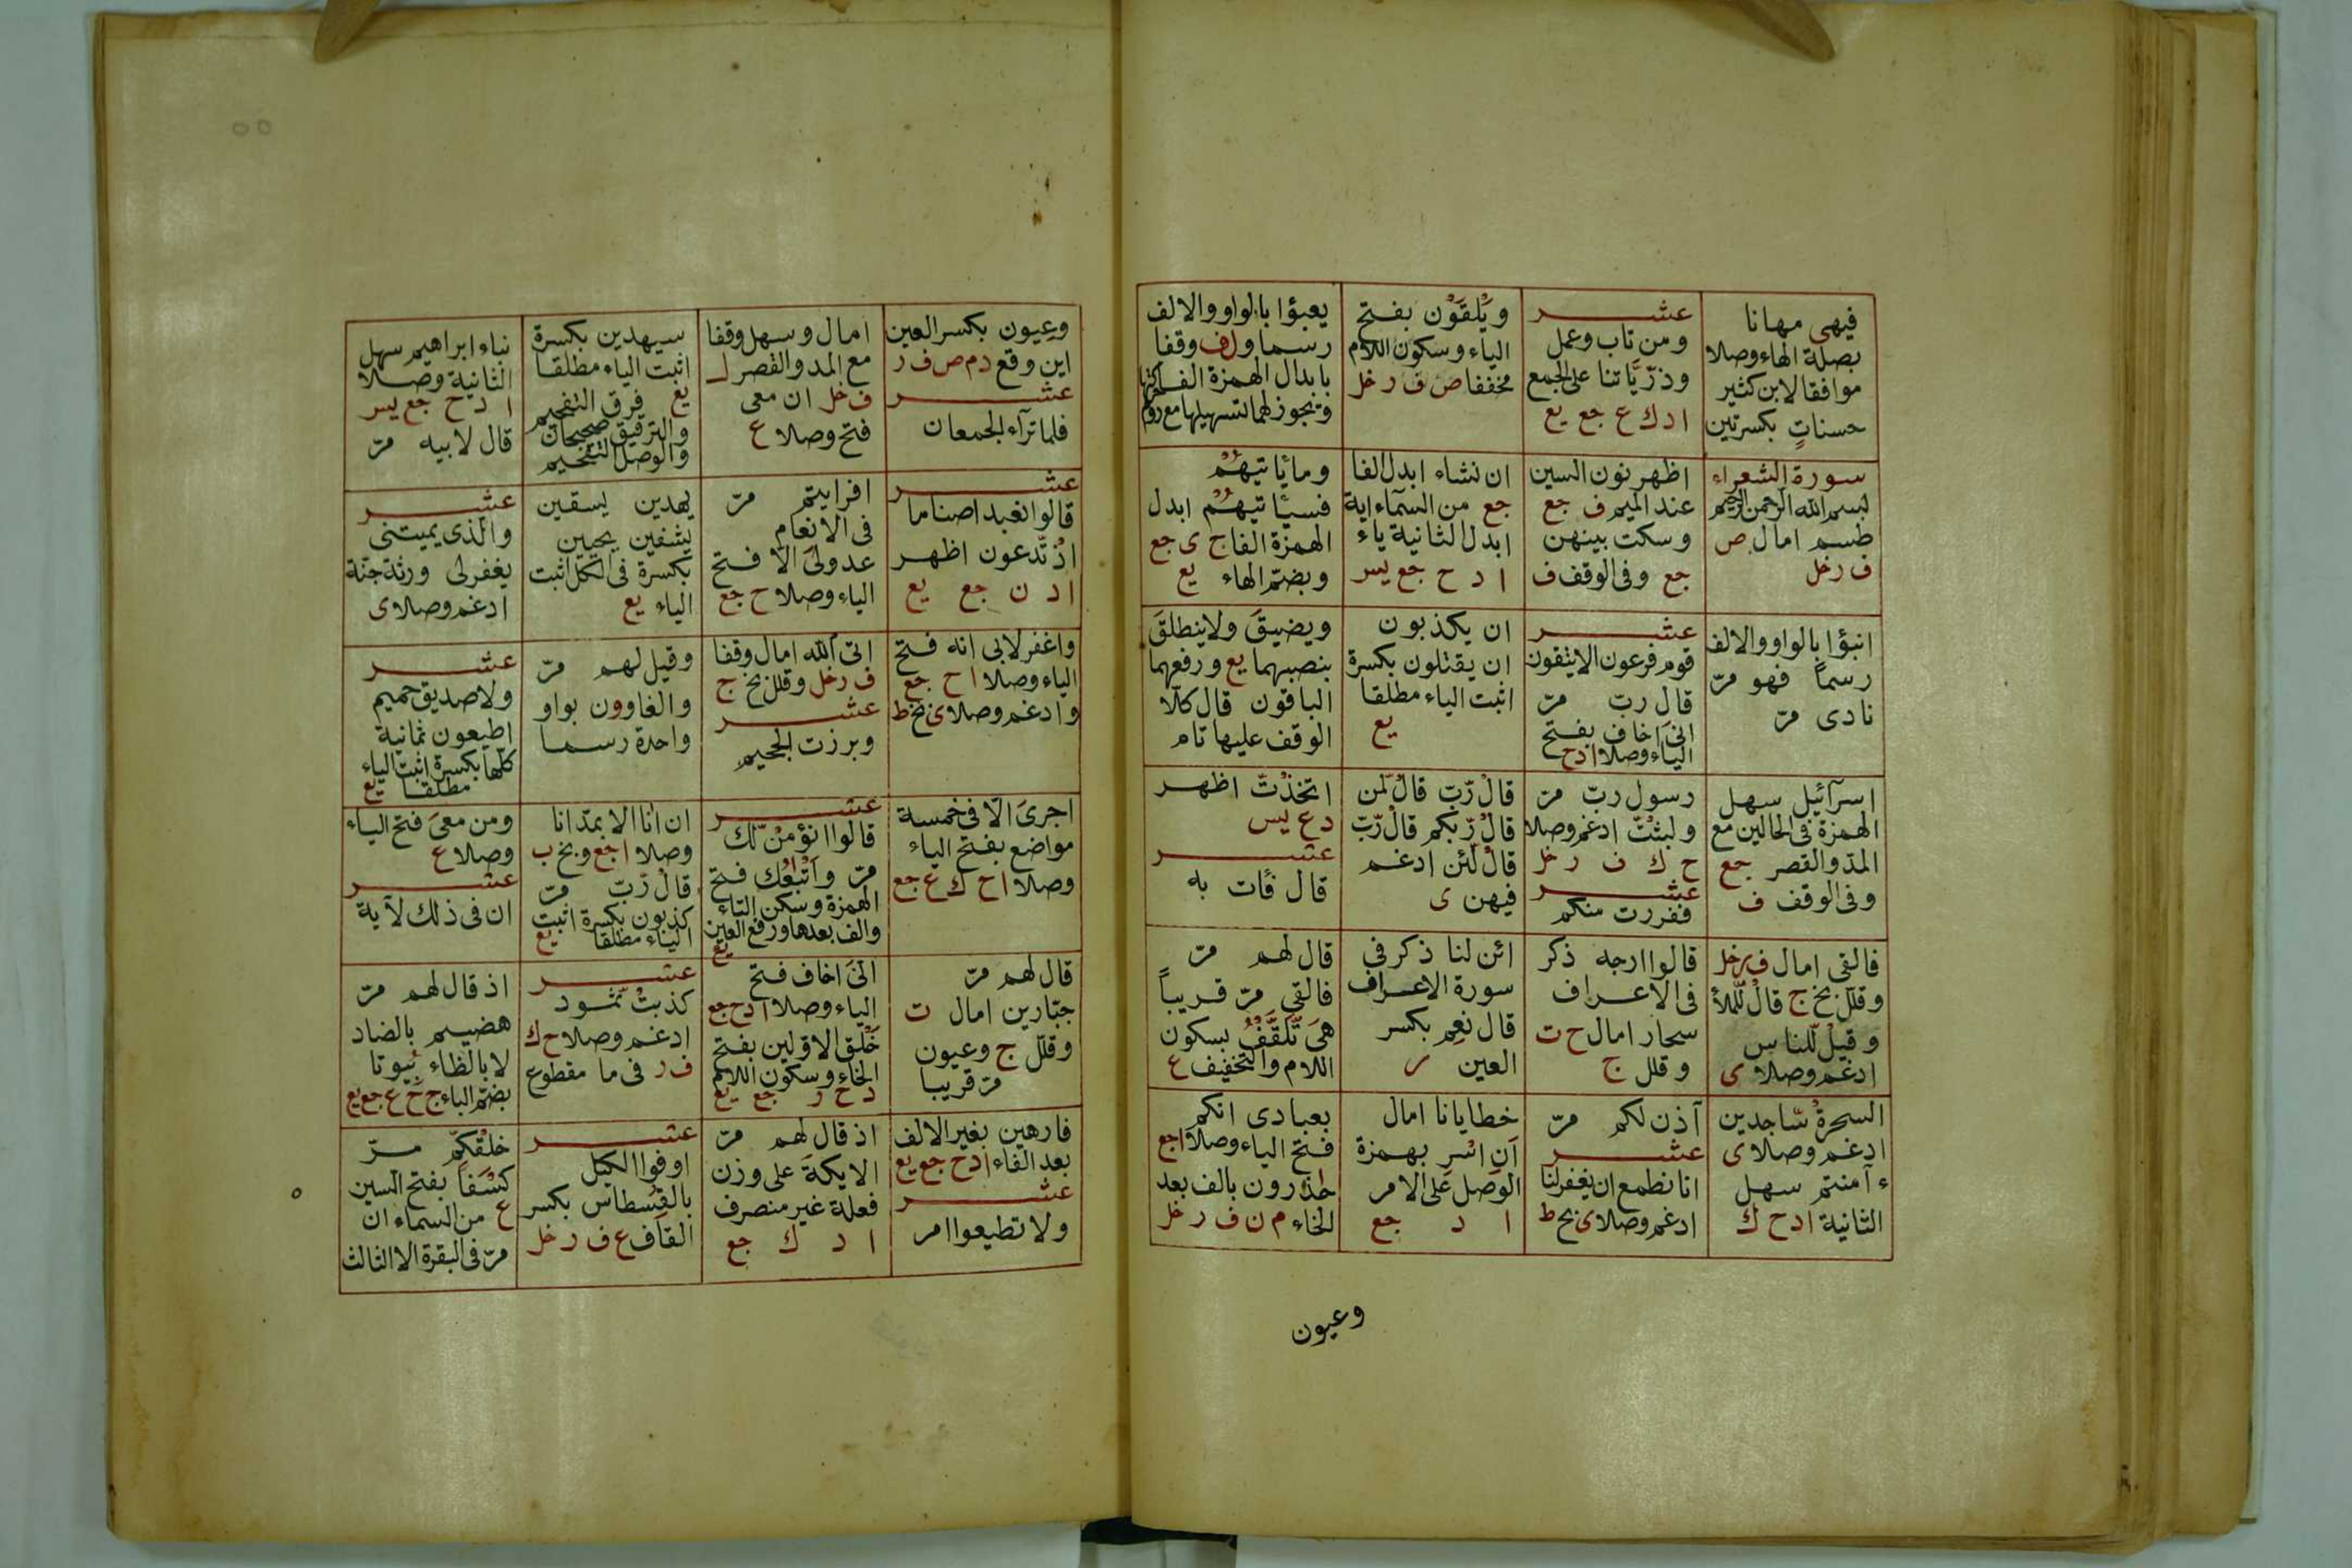 فيهى مهانا
بصلة الهاء وصلا
موافقا لابن كثير
حسناتٍ بكسرتين
عشر
ومن تاب وعمل
وذرّيّاتنا على الجمع
ا د ك ع جع يع
ويُلقَوْن بفتح
الياء وسكون اللام
مخففا ص ف ر خل
يعبؤا بالواو والالف
رسما ول ف وقفا
بابدال الهمزة الفا
وتجوز لهما لتسهيلها مع روم
سورة الشعراء
بسم الله الرحمن الرحيم
طسم امال ص
ف ر خل
اظهر نون السين
عند الميم ف جع
وسكت بينهن
جع وفى الوقف ف
ان نشاء ابدل الفا
جع من السمآء اية
ابدل الثانية ياء
ا د ح جع يس
وما يأتيهُم
فسيأتيهُم ابدل
الهمزة الفا ج ى جع
وبضم الهاء يع
انبؤا بالواو والالف
رسماً فهو مرّ
نادى مرّ
عشر
قوم فرعون الا يتقون
قال ربّ مرّ
انىَ اخاف بفتح
الياء وصلا ا د ح
ان يكذبون
ان يقتلون بكسرة
اثبت الياء مطلقا
يع
ويضيقَ ولا ينطلقَ
بنصبهما يع ورفعهما
الباقون قال كلا
الوقف عليها تام
اسرآئيل سهل
الهمزة فى الحالين مع
المد والقصر جع
وفى الوقف ف
رسول ربّ مرّ
ولبثتّ ادغم وصلا
ح ك ف ر خل
عشر
ففررت منكم
قالْ رّبّ قالْ لّمن
قالْ رّبّكم قالْ رّبّ
قالْ لّئن ادغم
فيهن ى
اتخذتّ اظهر
د ع يس
عشر
قال فأت به
فالقى امال ف ر خل
وقلل بخ ج قالْ لّلملأ
وقيلْ لّلناس
ادغم وصلا ى
قالوا ارجه ذكر
فى الاعراف
سحار امال ح ت
وقلل ج
ائن لنا ذكر فى
سورة الاعراف
قال نعِم بكسر
العين ر
قال لهم مرّ
فالقى مرّ قريباً
هىَ تّلقّفُ بسكون
اللام والتخفيف ع
السحرةُ سّاجدين
ادغم وصلا ى
ءآمنتم سهل
الثانية ا د ح ك
آذن لكم مرّ
عشر
انا نطمع ان يغفر لنا
ادغم وصلا ى بخ ط
خطايانا امال
اَن اسْر بهمزة
الوصل على الامر
ا د جع
بعبادى انكم
فتح الياء وصلا ا جع
حٰذرون بالف بعد
الحاء م ن ف ر خل
وعيون
وعيون بكسر العين
اين وقع د م ص ف ر
عشر
فلما تراء الجمعان
امال وسهل وقفا
مع المد والقصر لـ
ف خل ان معى
فتح وصلا ع
سيهدين بكسرة
اثبت الياء مطلقا
يع فرق التفخيم
والترقيق صحيحان
والوصل التفخيم
نباء ابراهيم سهل
الثانية وصلا
ا د ح جع يس
قال لابيه مرّ
عشر
قالوا نعبد اصناما
اذ تّدعون اظهر
ا د ن جع يع
افرايتم مرّ
فى الانعام
عدو لىَ الا فتح
الياء وصلا ح جع
يهدين يسقين
يشفين يحيين
بكسرة فى الكل اثبت
الياء يع
عشر
والّذى يميتنى
يغفر لى ورثة جنّة
ادغم وصلا ى
واغفر لابى انه فتح
الياء وصلا ا ح جع
وادغم وصلا ى بخ ط
اتى الله امال وقفا
ف ر خل وقلل بخ ج
عشر
وبرزت الجحيم
وقيل لهم مرّ
والغاوون بواو
واحدة رسما
عشر
ولا صديق حميم
اطيعون ثمانية
كلها بكسرة اثبت الياء
مطلقا يع
اجرىَ الا فى خمسة
مواضع بفتح الياء
وصلا ا ح ك ع جع
عشر
قالوا انؤمنْ لّك
مرّ واَتْبٰعُك فتح
الهمزة وسكن التاء
والف بعدها ورفع العين
يع
ان انا الا بمدّ انا
وصلا ا جع وبخ ب
قالْ رّبّ مرّ
كذبون بكسرة اثبت
الياء مطلقا يع
ومن معىَ فتح الياء
وصلا ع
عشر
ان فى ذلك لآية
قال لهم مرّ
جبّارين امال ت
وقلل ج وعيون
مرّ قريبا
انىَ اخاف فتح
الياء وصلا ا د ح جع
خَلْق الاولين بفتح
الخاء وسكون اللام
د ح ر جع يع
عشر
كذبتْ ثّمود
ادغم وصلا ح ك
ف ر فى ما مقطوع
اذ قال لهم مرّ
هضيم بالضاد
لا بالظاء بُيوتا
بضم الباء ج ح ع جع يع
فارهين بغير الالف
بعد الفاء ا د ح جع يع
عشر
ولا تطيعوا امر
اذ قال لهم مرّ
الايكةَ على وزن
فعلة غير منصرف
ا د ك جع
عشر
اوفوا الكيل
بالقسطاس بكسر
القاف ع ف ر خل
خلقكّم مرّ
كسَفاً بفتح السين
ع من السماء ان
مرّ فى البقرة الا الثالث